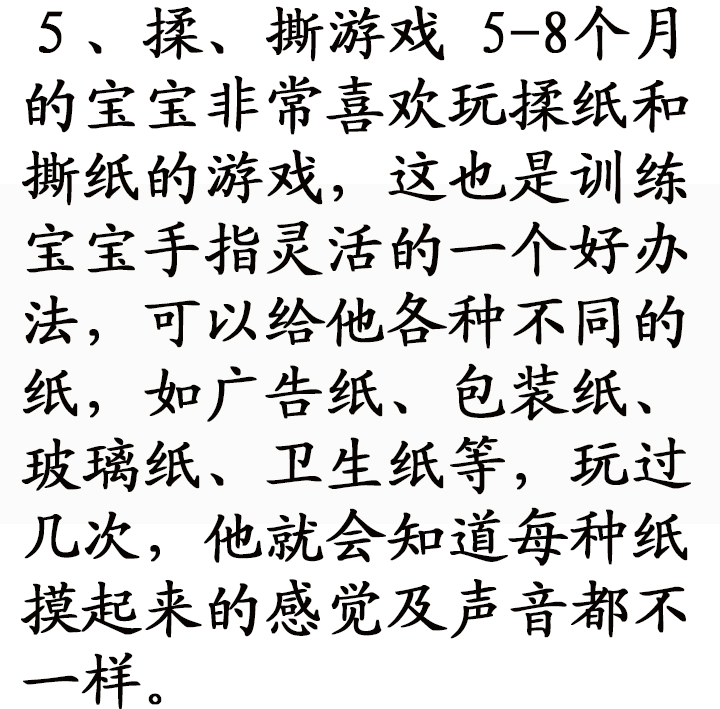 5、揉、撕游戏 5-8个月
的宝宝非常喜欢玩揉纸和
撕纸的游戏，这也是训练
宝宝手指灵活的一个好办
法，可以给他各种不同的
纸，如广告纸、包装纸、
玻璃纸、卫生纸等，玩过
几次，他就会知道每种纸
摸起来的感觉及声音都不
一样。